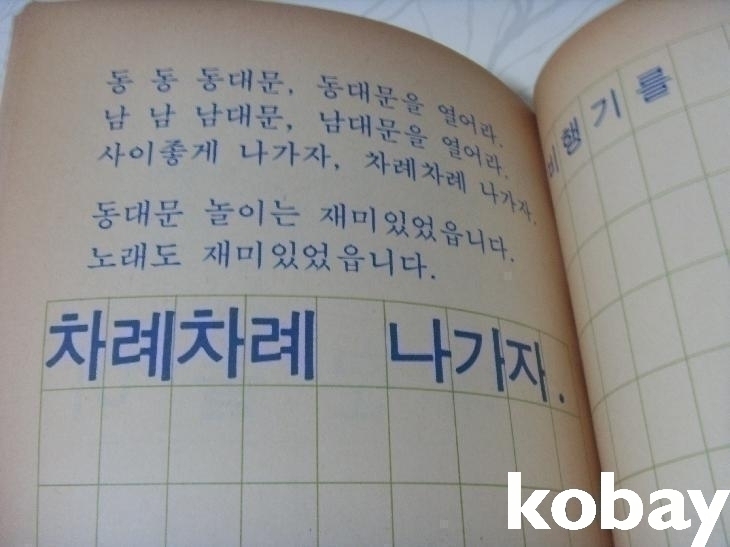 동 동 동대문, 동대문을 열어라.
남 남 남대문, 남대문을 열어라.
사이좋게 나가자, 차례차례 나가자.
동대문 놀이는 재미있었읍니다.
노래도 재미있었읍니다.
차례차례 나가자.
비행기를
kobay